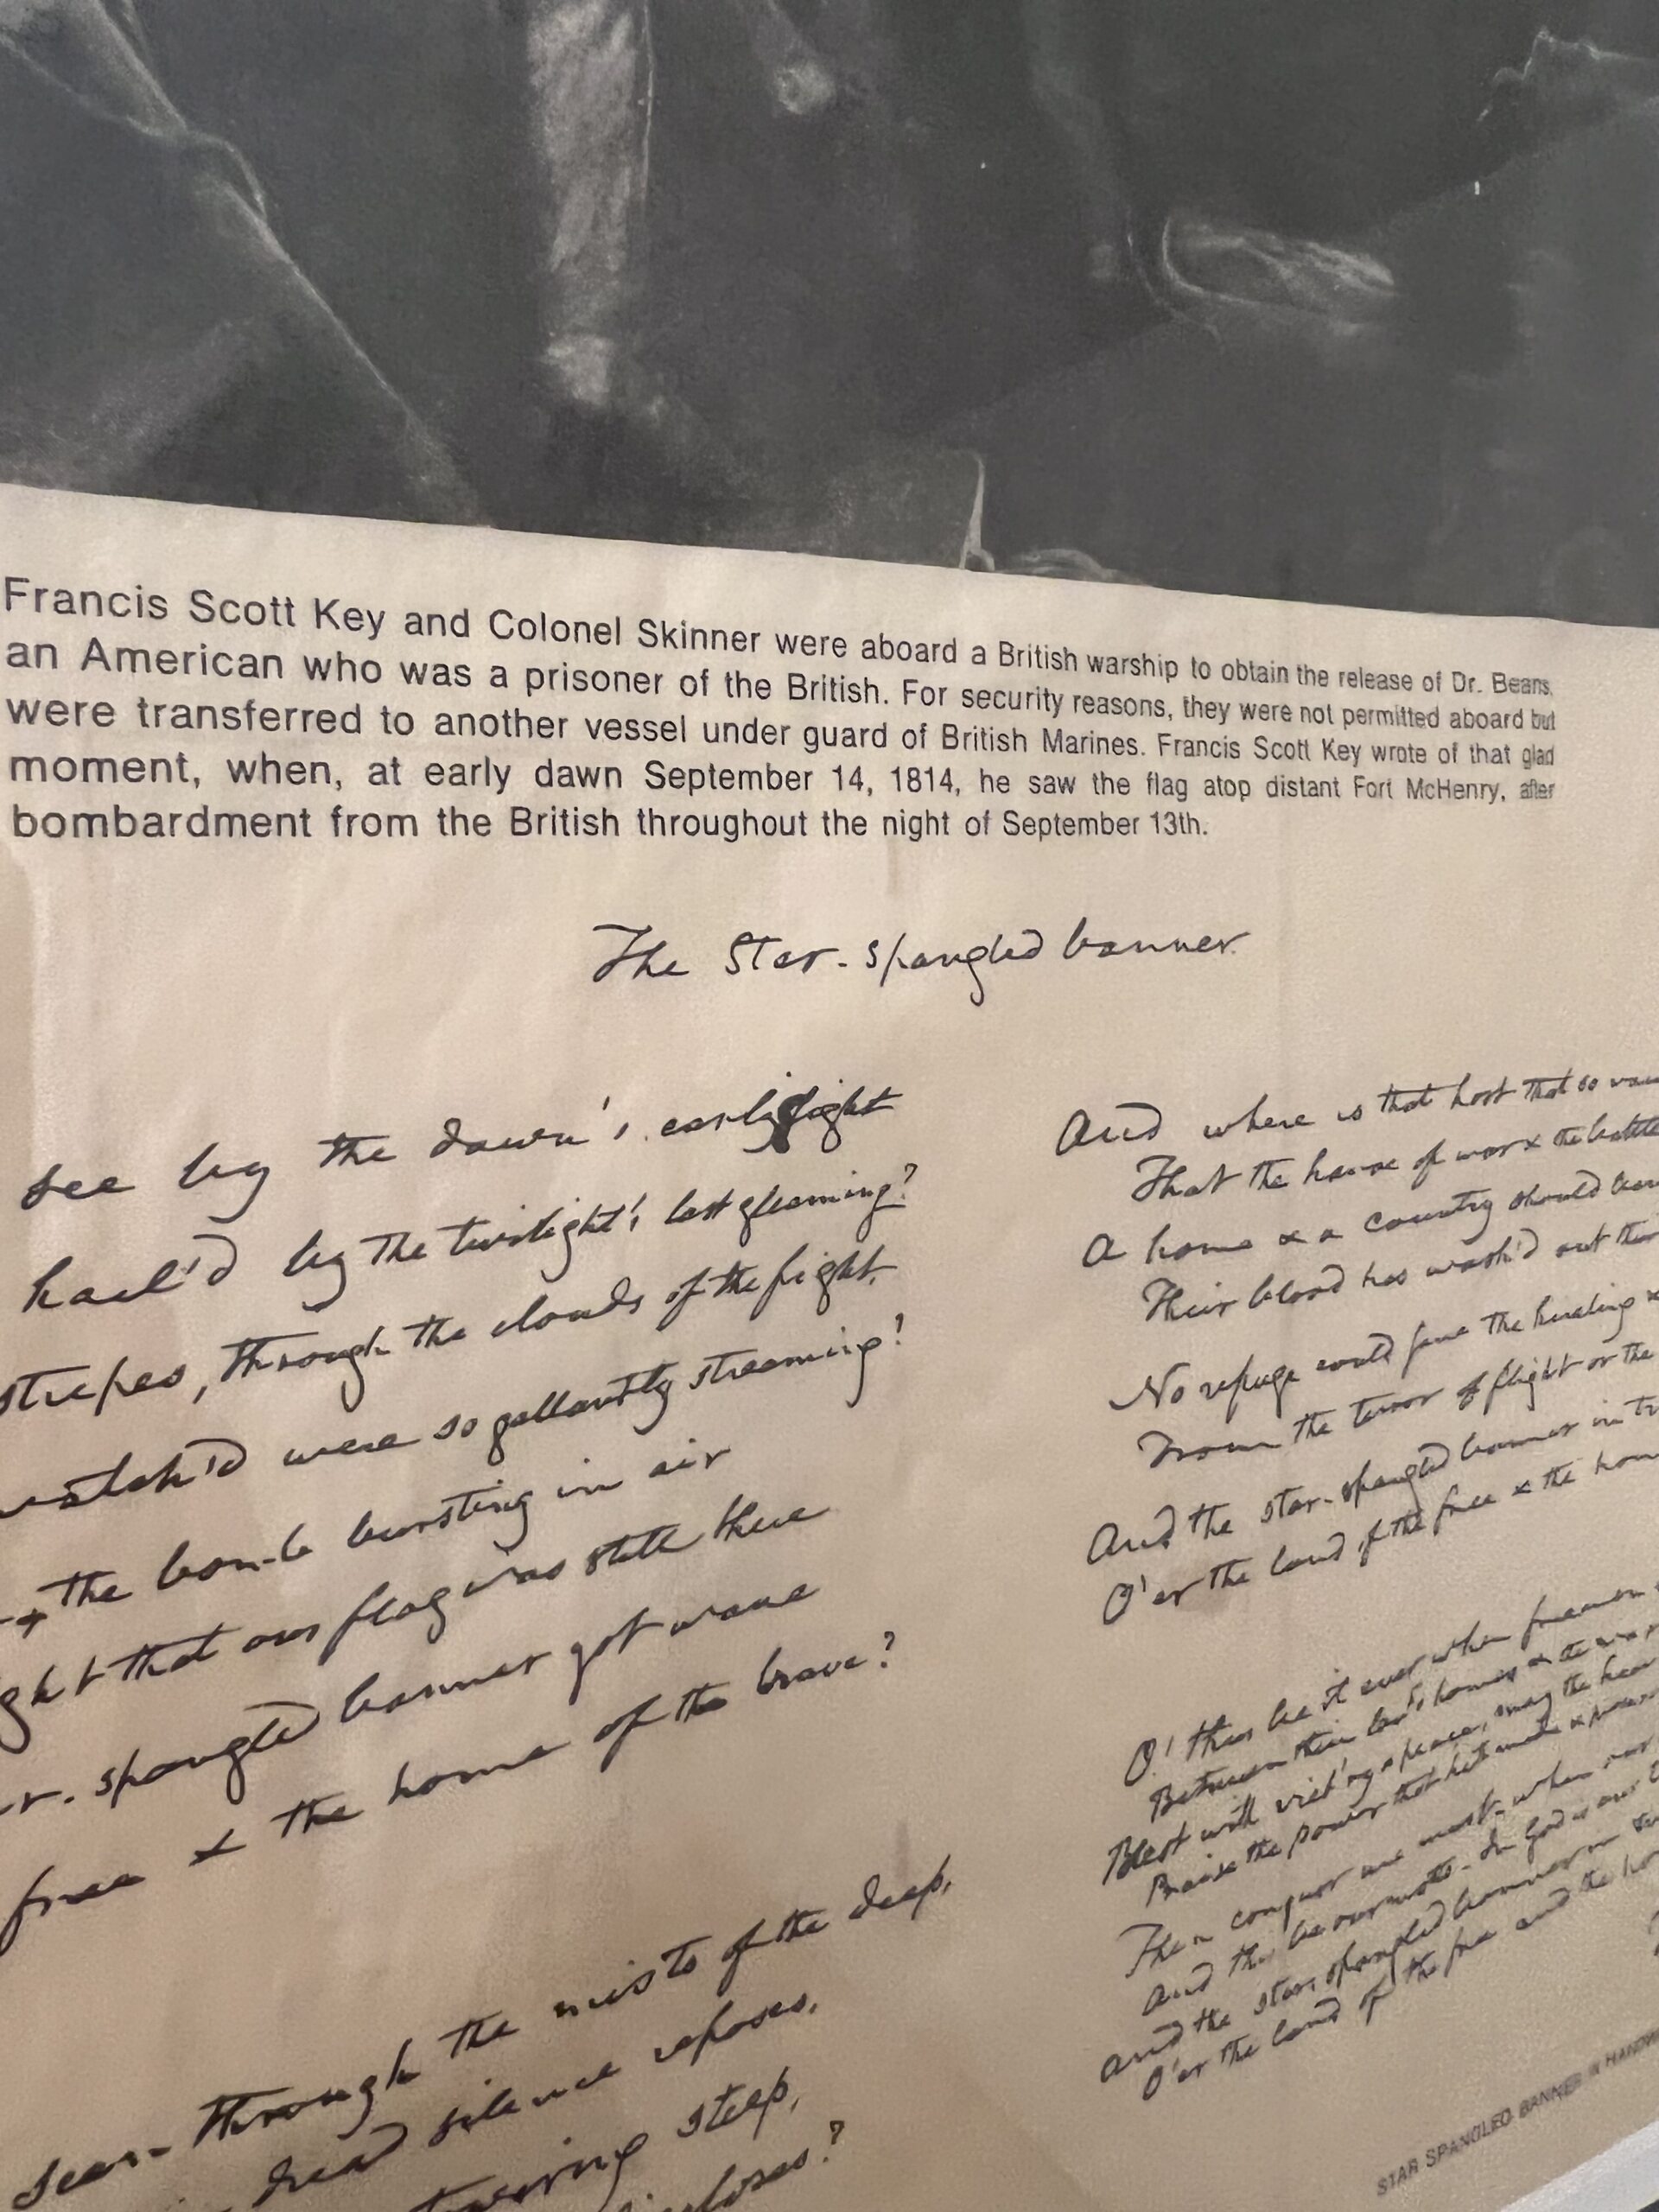 Francis Scott Key and Colonel Skinner were aboard a British warship to obtain the release of Dr. Beans,
an American who was a prisoner of the British. For security reasons, they were not permitted aboard but
were transferred to another vessel under guard of British Marines. Francis Scott Key wrote of that glad
moment, when, at early dawn September 14, 1814, he saw the flag atop distant Fort McHenry, after
bombardment from the British throughout the night of September 13th.
The Star-spangled banner
see by the dawn's early light
hail'd by the twilight's last gleaming?
stripes, through the clouds of the fight,
watch'd were so gallantly streaming?
+ the bomb bursting in air
ght that our flag was still there
r-spangled banner yet wave
free & the home of the brave?
seen through the mists of the deep,
dread silence reposes,
towering steep,
discloses?
And where is that host that so
That the havoc of war & the battle
A home & a country should
Their blood has wash'd out their
No refuge could save the hireling &
From the terror of flight or the
And the star-spangled banner in
O'er the land of the free & the
O! thus be it ever when freemen
Between their lov'd homes & the war
Blest with vict'ry & peace, may the
Praise the power that hath made &
Then conquer we must, when
And this be our motto - In God is our
And the star-spangled banner in
O'er the land of the free and the
STAR SPANGLED BANNER IN